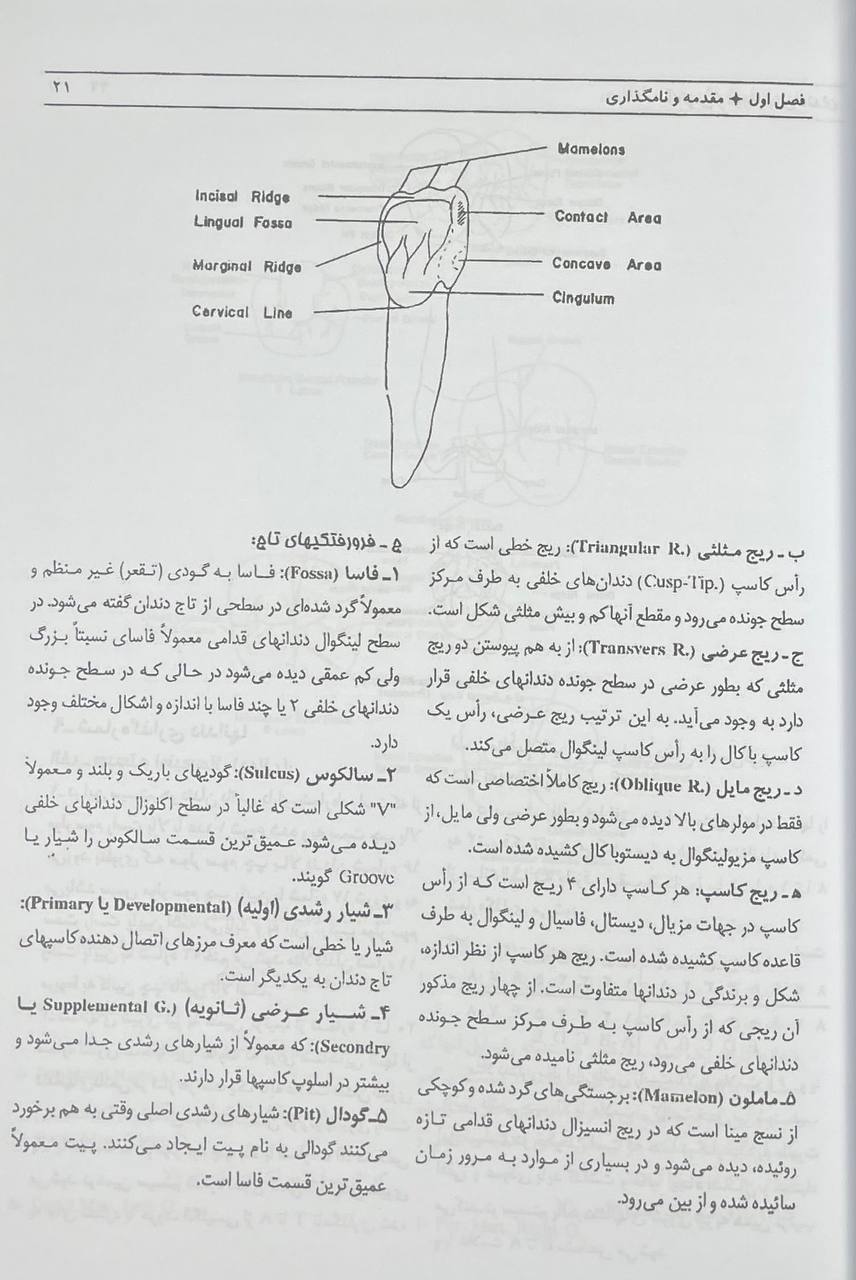 فصل اول ✦ مقدمه و نامگذاری
۲۱
Mamelons
Incisal Ridge
Lingual Fossa
Marginal Ridge
Cervical Line
Contact Area
Concave Area
Cingulum
ب ـ ریج مـثلثی (Triangular R.): ریج خطی است که از
رأس کاسپ (Cusp-Tip.) دندان‌های خلفی به طرف مرکز
سطح جونده می‌رود و مقطع آنها کم و بیش مثلثی شکل است.
ج ـ ریج عرضی (Transvers R.): از به هم پیوستن دو ریج
مثلثی که بطور عرضی در سطح جونده دندانهای خلفی قرار
دارد به وجود می‌آید. به این ترتیب ریج عـرضی، رأس یک
کاسپ باکال را به رأس کاسپ لینگوال متصل می‌کند.
د ـ ریج مایل (Oblique R.): ریج کاملاً اختصاصی است که
فقط در مولرهای بالا دیده می‌شود و بطور عرضی ولی مایل، از
کاسپ مزیولینگوال به دیستوباکال کشیده شده است.
ه ـ ریج کاسپ: هر کـاسپ دارای ۴ ریـج است کـه از رأس
کاسپ در جهات مزیال، دیستال، فاسیال و لینگوال به طرف
قاعده کاسپ کشیده شده است. ریج هر کاسپ از نظر اندازه،
شکل و برندگی در دندانها متفاوت است. از چهار ریج مذکور
آن ریجی که از رأس کاسپ بـه طـرف مـرکز سـطح جـونده
دندانهای خلفی می‌رود، ریج مثلثی نامیده می‌شود.
۵ـ ماملون (Mamelon): برجستگی‌های گرد شده و کوچکی
از نسج مینا است که در ریج انسیزال دندانهای قدامی تـازه
روئیده، دیده می‌شود و در بسیاری از موارد به مرور زمان
سائیده شده و از بین می‌رود.
ج ـ فرورفتگیهای تاج:
۱ـ فاسا (Fossa): فـاسا بـه گـودی (تـقعر) غیر مـنظم و
معمولاً گرد شده‌ای در سطحی از تاج دندان گفته می‌شود. در
سطح لینگوال دندانهای قدامی معمولاً فاسای نسبتاً بـزرگ
ولی کم عمقی دیده می‌شود در حالی کـه در سـطح جـونده
دندانهای خلفی ۲ یا چند فاسا با اندازه و اشکال مختلف وجود
دارد.
۲ـ سالکوس (Sulcus): گودیهای باریک و بلند و معمولاً
"V" شکلی است که غالباً در سطح اکلوزال دندانهای خلفی
دیـده می‌شود. عـمیق ترین قسـمت سـالکوس را شـیار یـا
Groove گویند.
۳ـ شیار رشدی (اولیه) (Developmental یا Primary):
شیار یا خطی است که معرف مرزهای اتصال دهنده کاسپهای
تاج دندان به یکدیگر است.
۴ـ شــیار عــرضی (ثـانویه) (Supplemental G. یـا
Secondry): که معمولاً از شیارهای رشدی جدا می‌شود و
بیشتر در اسلوپ کاسپها قرار دارند.
۵ـ گودال (Pit): شیارهای رشدی اصلی وقتی به هم برخورد
می‌کنند گودالی به نام پیت ایجاد می‌کنند. پیت معمولاً
عمیق ترین قسمت فاسا است.